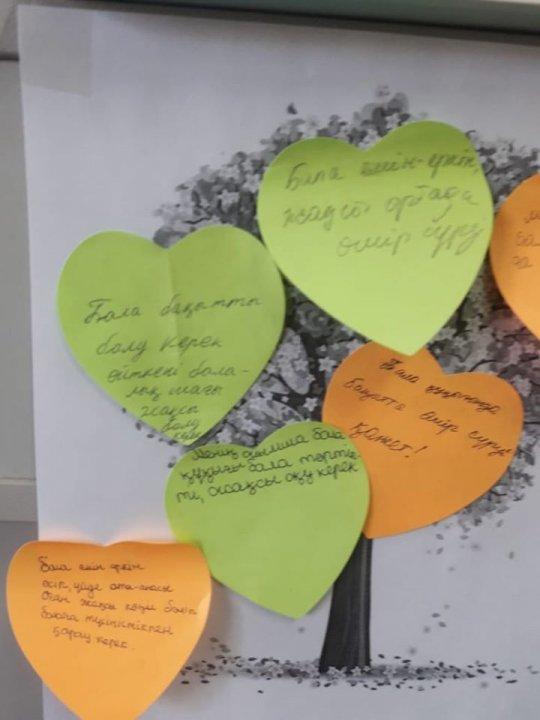 Бала еркін-еркін,
жақсы ортада
өмір сүру
Бала бақытты
болу керек
өйткені бала-
лық шағы
жақсы
болу
керек
Бала құқығында
бақытта өмір сүру
қажет!
Менің ойымша бала
құқығы бала тәртіп-
ті, жақсы оқу керек
Бала еркін
өсіп, үйде ата-анасы
оған жақсы көңіл бөліп
балаға түсіністікпен
қарау керек.